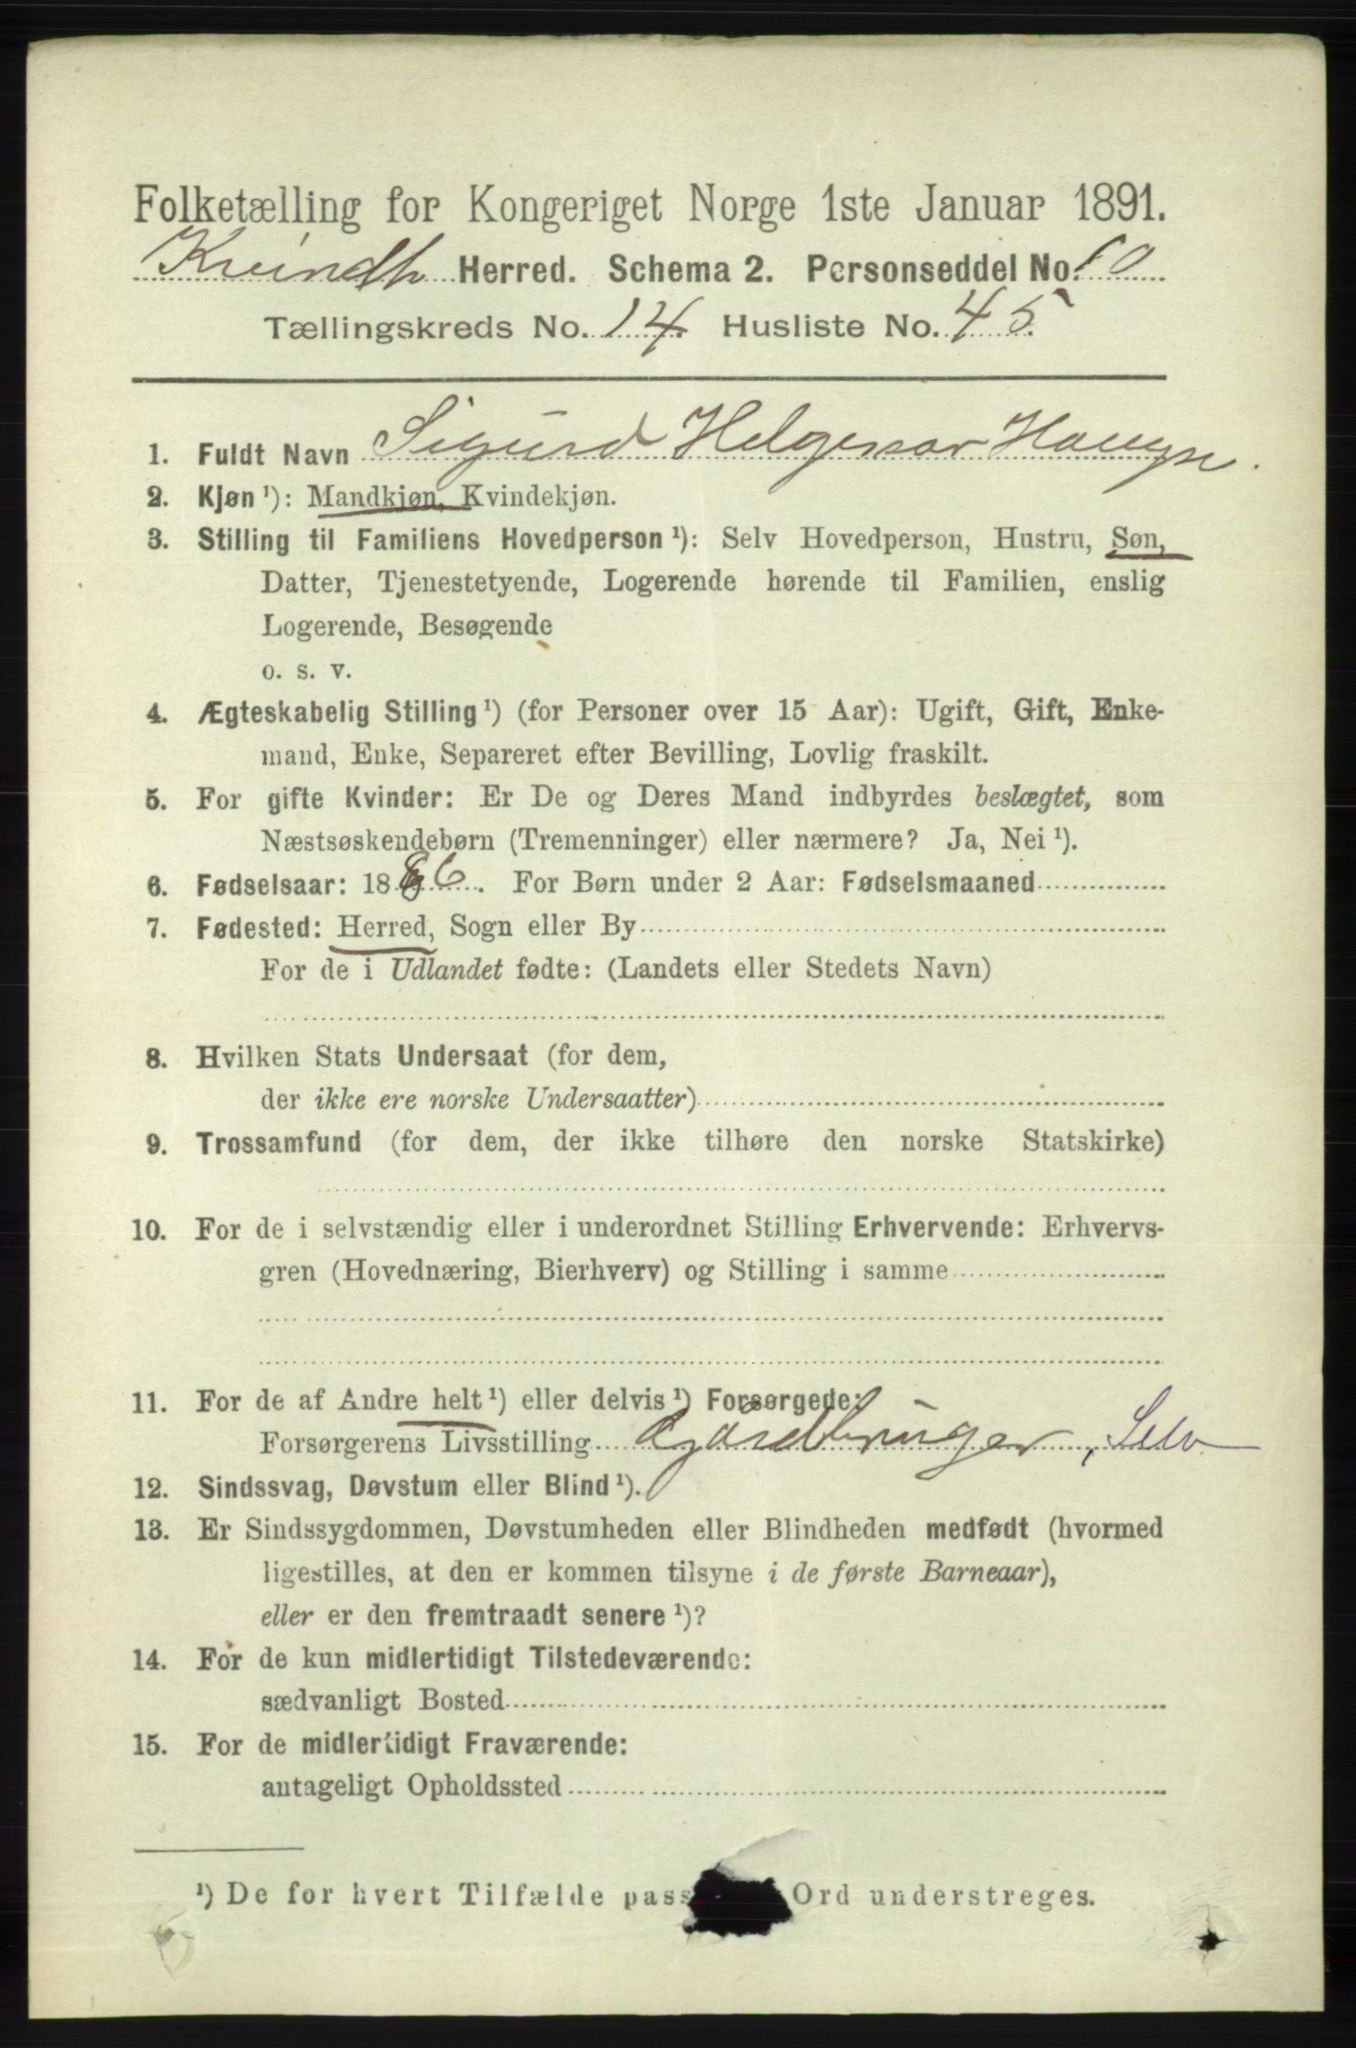 Folketælling for Kongeriget Norge 1ste Januar 1891.
Kvindh Herred. Schema 2. Personseddel No. 10
Tællingskreds No. 14. Husliste No. 45.
1. Fuldt Navn Sigurd Helgessøn
2. Kjøn ¹): Mandkjøn, Kvindekjøn.
3. Stilling til Familiens Hovedperson ¹): Selv Hovedperson, Hustru, Søn,
Datter, Tjenestetyende, Logerende hørende til Familien, enslig
Logerende, Besøgende
o. s. v.
4. Ægteskabelig Stilling ¹) (for Personer over 15 Aar): Ugift, Gift, Enke-
mand, Enke, Separeret efter Bevilling, Lovlig fraskilt.
5. For gifte Kvinder: Er De og Deres Mand indbyrdes beslægtet, som
Næstsøskendebørn (Tremenninger) eller nærmere? Ja, Nei ¹).
6. Fødselsaar: 1886. For Børn under 2 Aar: Fødselsmaaned
7. Fødested: Herred, Sogn eller By
For de i Udlandet fødte: (Landets eller Stedets Navn)
8. Hvilken Stats Undersaat (for dem,
der ikke ere norske Undersaatter)
9. Trossamfund (for dem, der ikke tilhøre den norske Statskirke)
10. For de i selvstændig eller i underordnet Stilling Erhvervende: Erhvervs-
gren (Hovednæring, Bierhverv) og Stilling i samme
11. For de af Andre helt ¹) eller delvis ¹) Forsørgede:
Forsørgerens Livsstilling Gårdbruger, Selv
12. Sindssvag, Døvstum eller Blind ¹).
13. Er Sindssygdommen, Døvstumheden eller Blindheden medfødt (hvormed
ligestilles, at den er kommen tilsyne i de første Barneaar),
eller er den fremtraadt senere ¹)?
14. For de kun midlertidigt Tilstedeværende:
sædvanligt Bosted
15. For de midlertidigt Fraværende:
antageligt Opholdssted
¹) De for hvert Tilfælde pass Ord understreges.